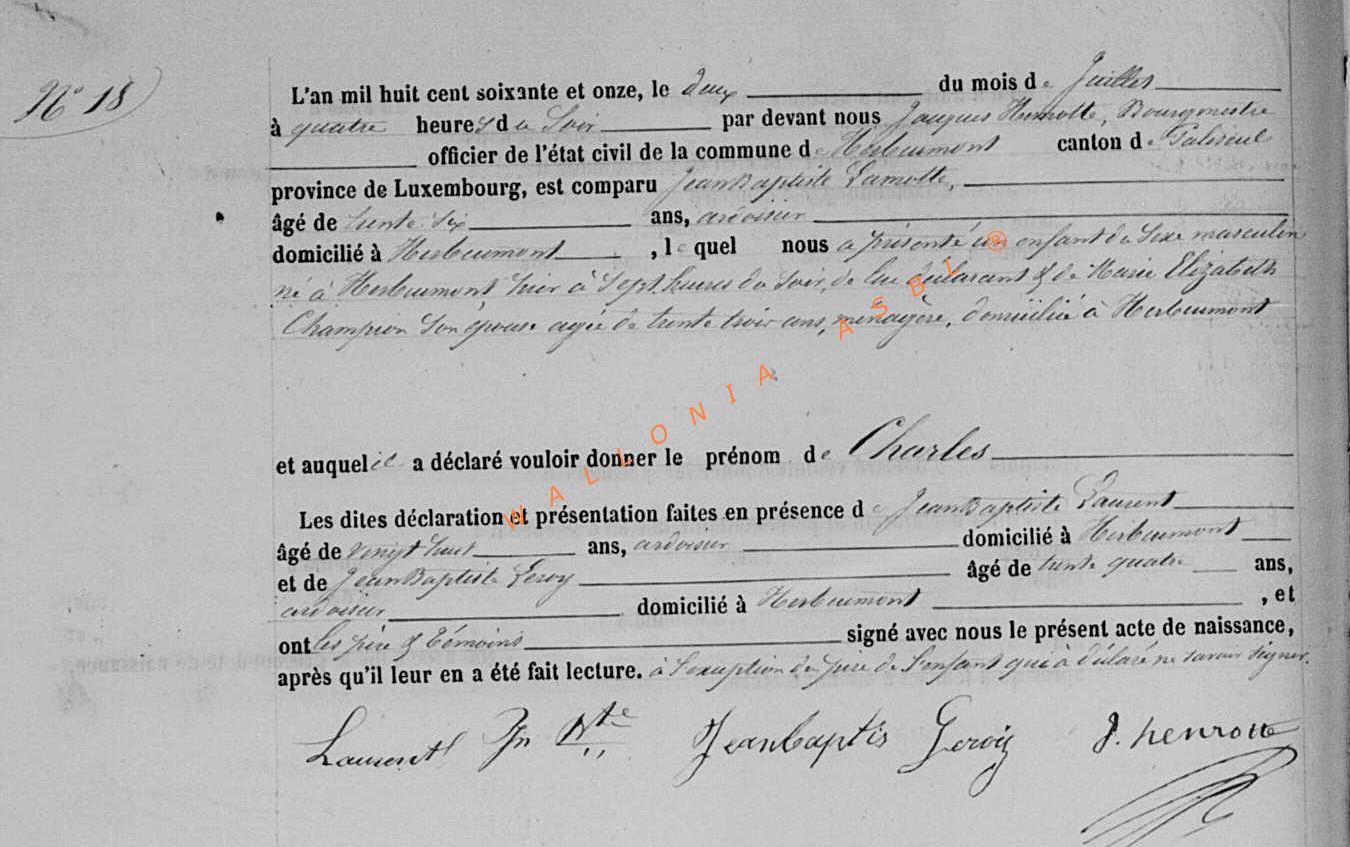 N° 18
L'an mil huit cent soixante et onze, le deux du mois de Juillet
à quatre heures du Soir par devant nous Jacques Henrotte, Bourgmestre
officier de l'état civil de la commune de Herbeumont canton de Paliseul
province de Luxembourg, est comparu Jean Baptiste Lamotte,
âgé de trente Six ans, ardoisier
domicilié à Herbeumont , lequel nous a présenté un enfant du Sexe masculin
né à Herbeumont hier à Sept heures du Soir, de lui déclarant & de Marie Elizabeth
Champion Son épouse agée de trente trois ans, ménagère, domiciliée à Herbeumont
et auquel il a déclaré vouloir donner le prénom de Charles
Les dites déclaration et présentation faites en présence de Jean Baptiste Laurent
âgé de vingt huit ans, ardoisier domicilié à Herbeumont
et de Jean Baptiste Leroy âgé de trente quatre ans,
ardoisier domicilié à Herbeumont , et
ont les père & témoins signé avec nous le présent acte de naissance,
après qu'il leur en a été fait lecture. à l'exception du père de l'enfant qui à déclaré ne savoir Signer.
Laurent Jn Bte Jeanbaptis Leroiy J. henrotte
WALLONIA ASBL ®